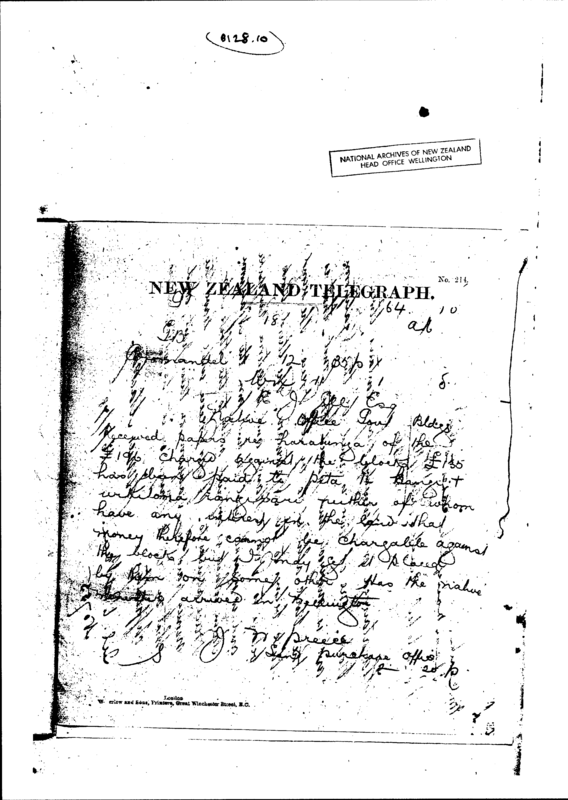 B128.10
NATIONAL ARCHIVES OF NEW ZEALAND
HEAD OFFICE WELLINGTON
No. 214
NEW ZEALAND TELEGRAPH.
64 10
18
Coromandel 12
R. J. Gill Esq
Native Office Govt Bldgs
Received papers re Harakunga of the
£196 charge against the block £150
has been paid to Peta Te
neither of whom
have any interest in the land that
money therefore cannot be chargable against
the block but I may get it placed
by them on some other. Has the native
arrived in Wellington
J W Preece
Land purchase offr
London
and Sons, Printers, Great Winchester Street, E.C.